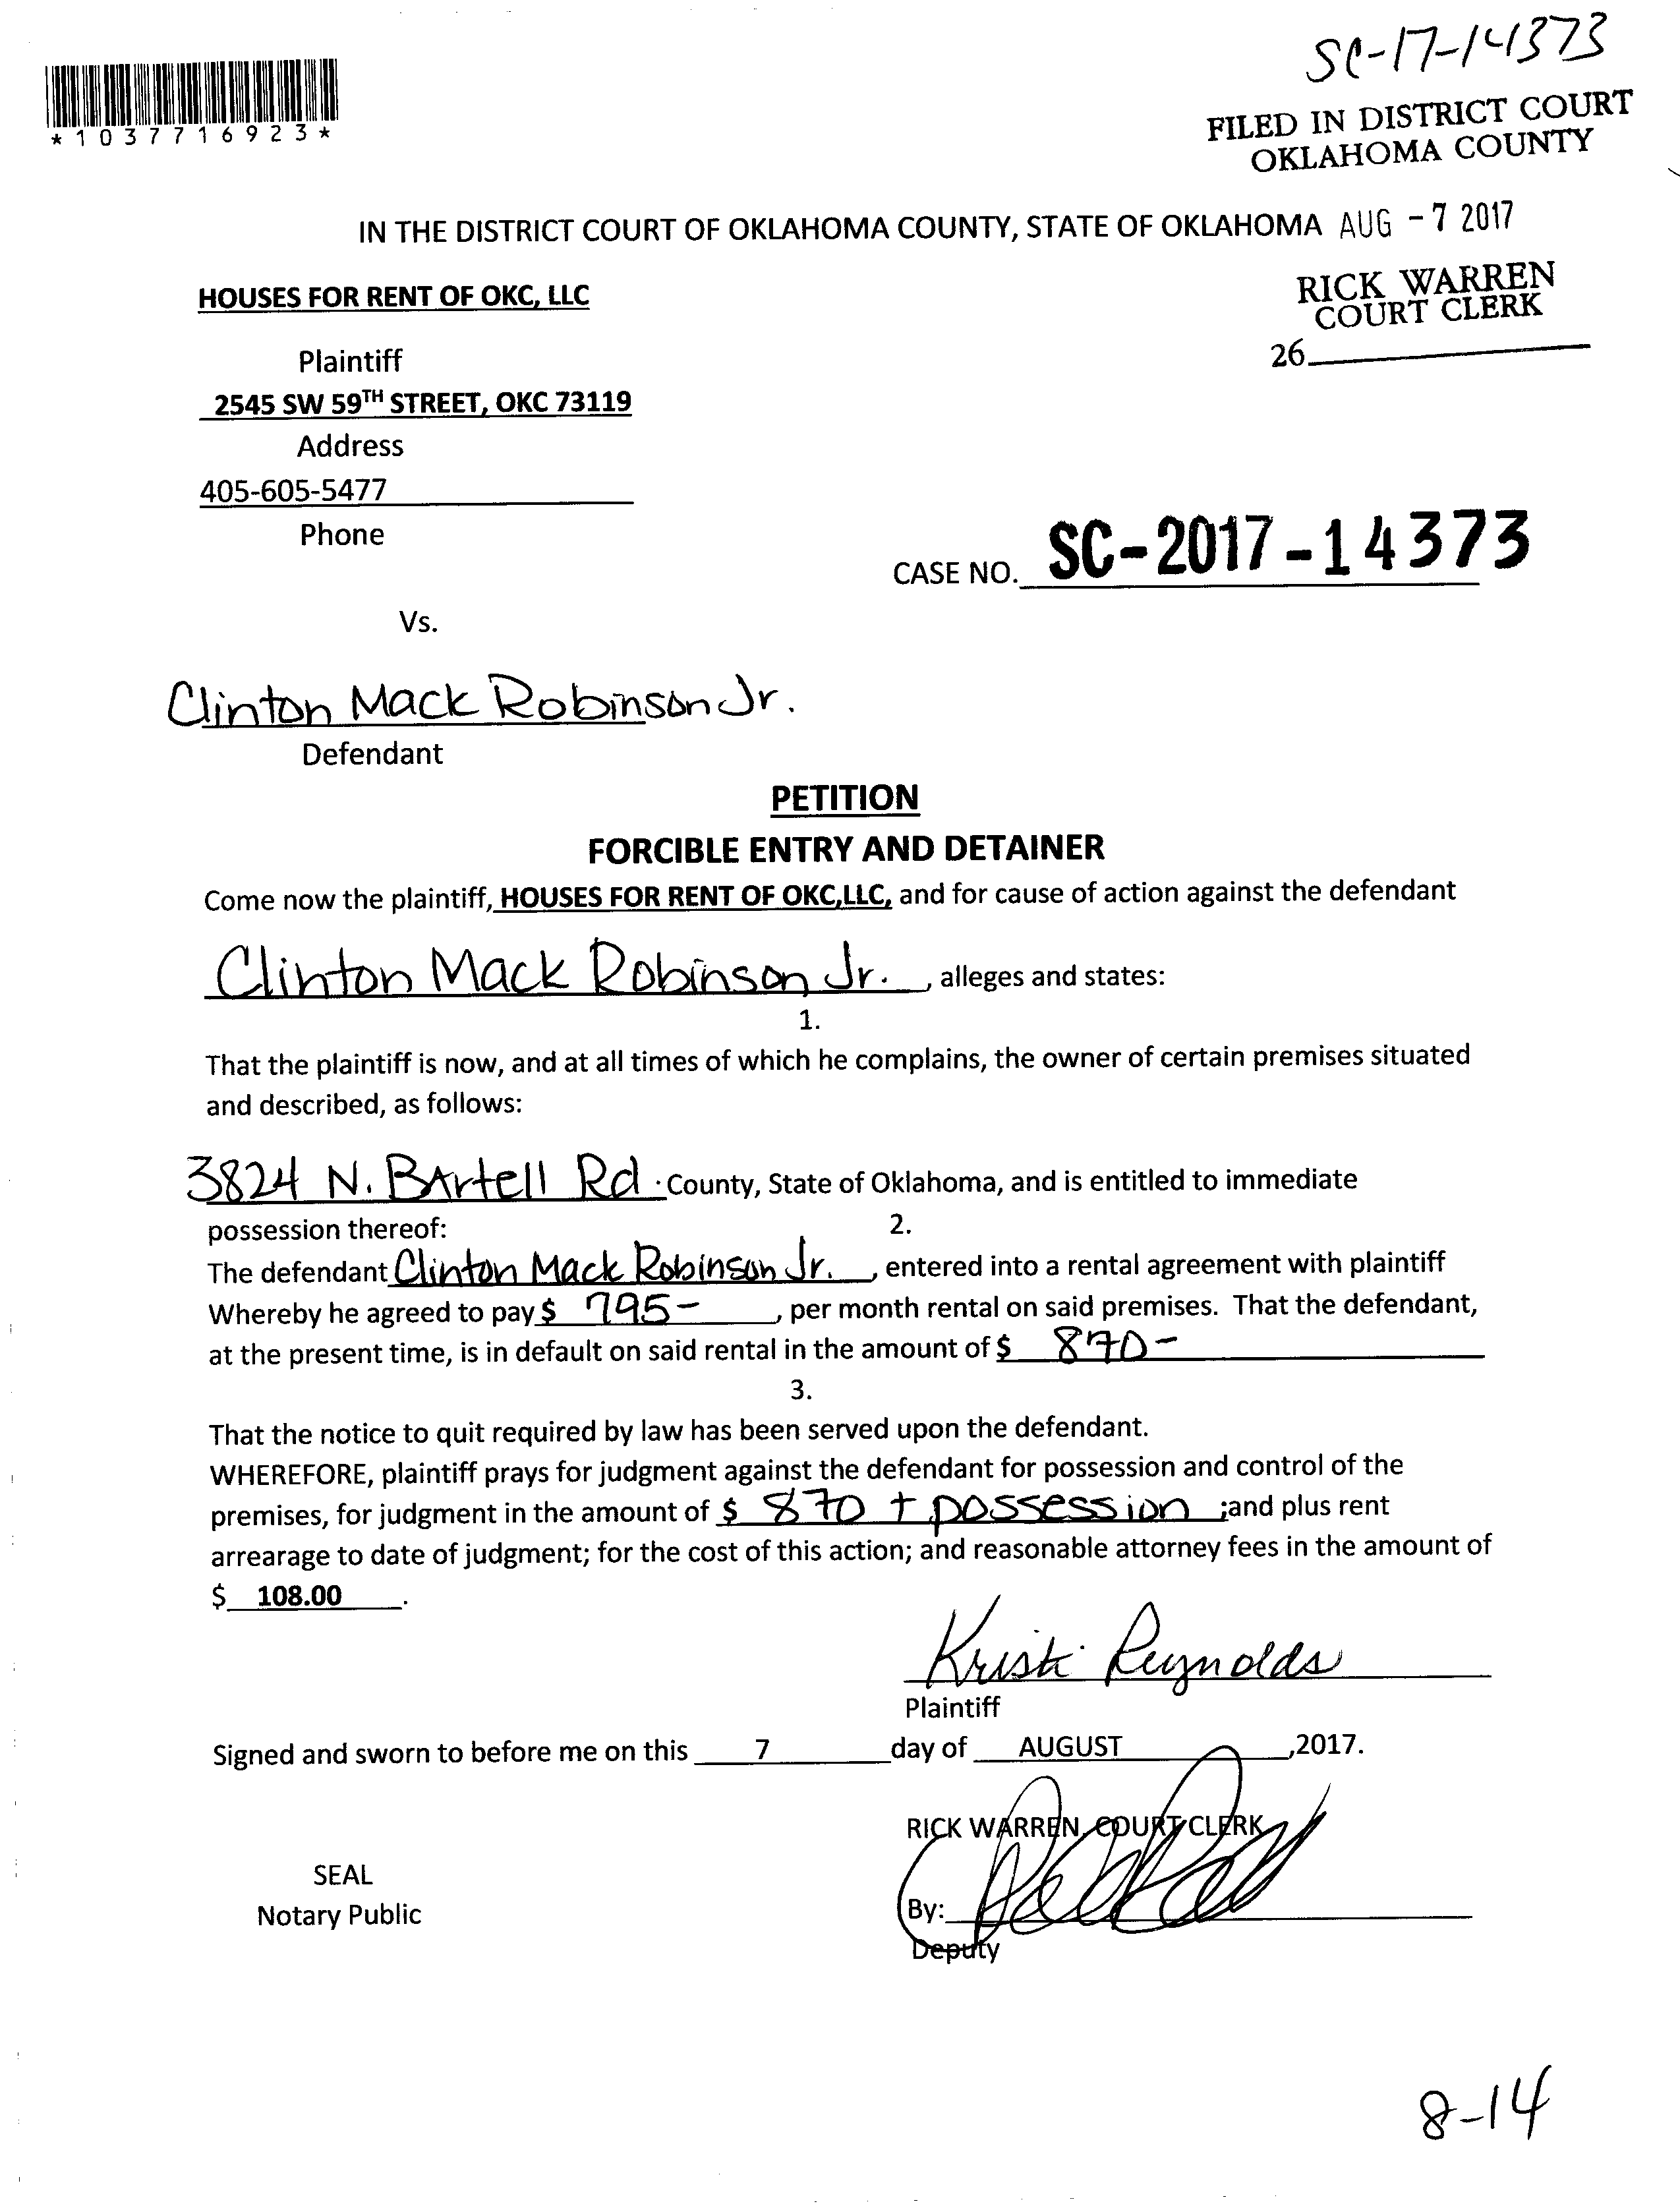 SC-17-14373
*1037716923*
FILED IN DISTRICT COURT
OKLAHOMA COUNTY
IN THE DISTRICT COURT OF OKLAHOMA COUNTY, STATE OF OKLAHOMA AUG -7 2017
HOUSES FOR RENT OF OKC, LLC
RICK WARREN
COURT CLERK
26
Plaintiff
2545 SW 59TH STREET, OKC 73119
Address
405-605-5477
Phone
CASE NO. SC-2017-14373
Vs.
Clinton Mack Robinson Jr.
Defendant
PETITION
FORCIBLE ENTRY AND DETAINER
Come now the plaintiff, HOUSES FOR RENT OF OKC,LLC, and for cause of action against the defendant
Clinton Mack Robinson Jr. , alleges and states:
1.
That the plaintiff is now, and at all times of which he complains, the owner of certain premises situated
and described, as follows:
3824 N. BArtell Rd . County, State of Oklahoma, and is entitled to immediate
possession thereof: 2.
The defendant Clinton Mack Robinson Jr. , entered into a rental agreement with plaintiff
Whereby he agreed to pay $ 795- , per month rental on said premises. That the defendant,
at the present time, is in default on said rental in the amount of $ 870-
3.
That the notice to quit required by law has been served upon the defendant.
WHEREFORE, plaintiff prays for judgment against the defendant for possession and control of the
premises, for judgment in the amount of $ 870 + possession ;and plus rent
arrearage to date of judgment; for the cost of this action; and reasonable attorney fees in the amount of
$ 108.00 .
Kristi Reynolds
Plaintiff
Signed and sworn to before me on this 7 day of AUGUST ,2017.
RICK WARREN, COURT CLERK
SEAL
Notary Public
By:
Deputy
8-14